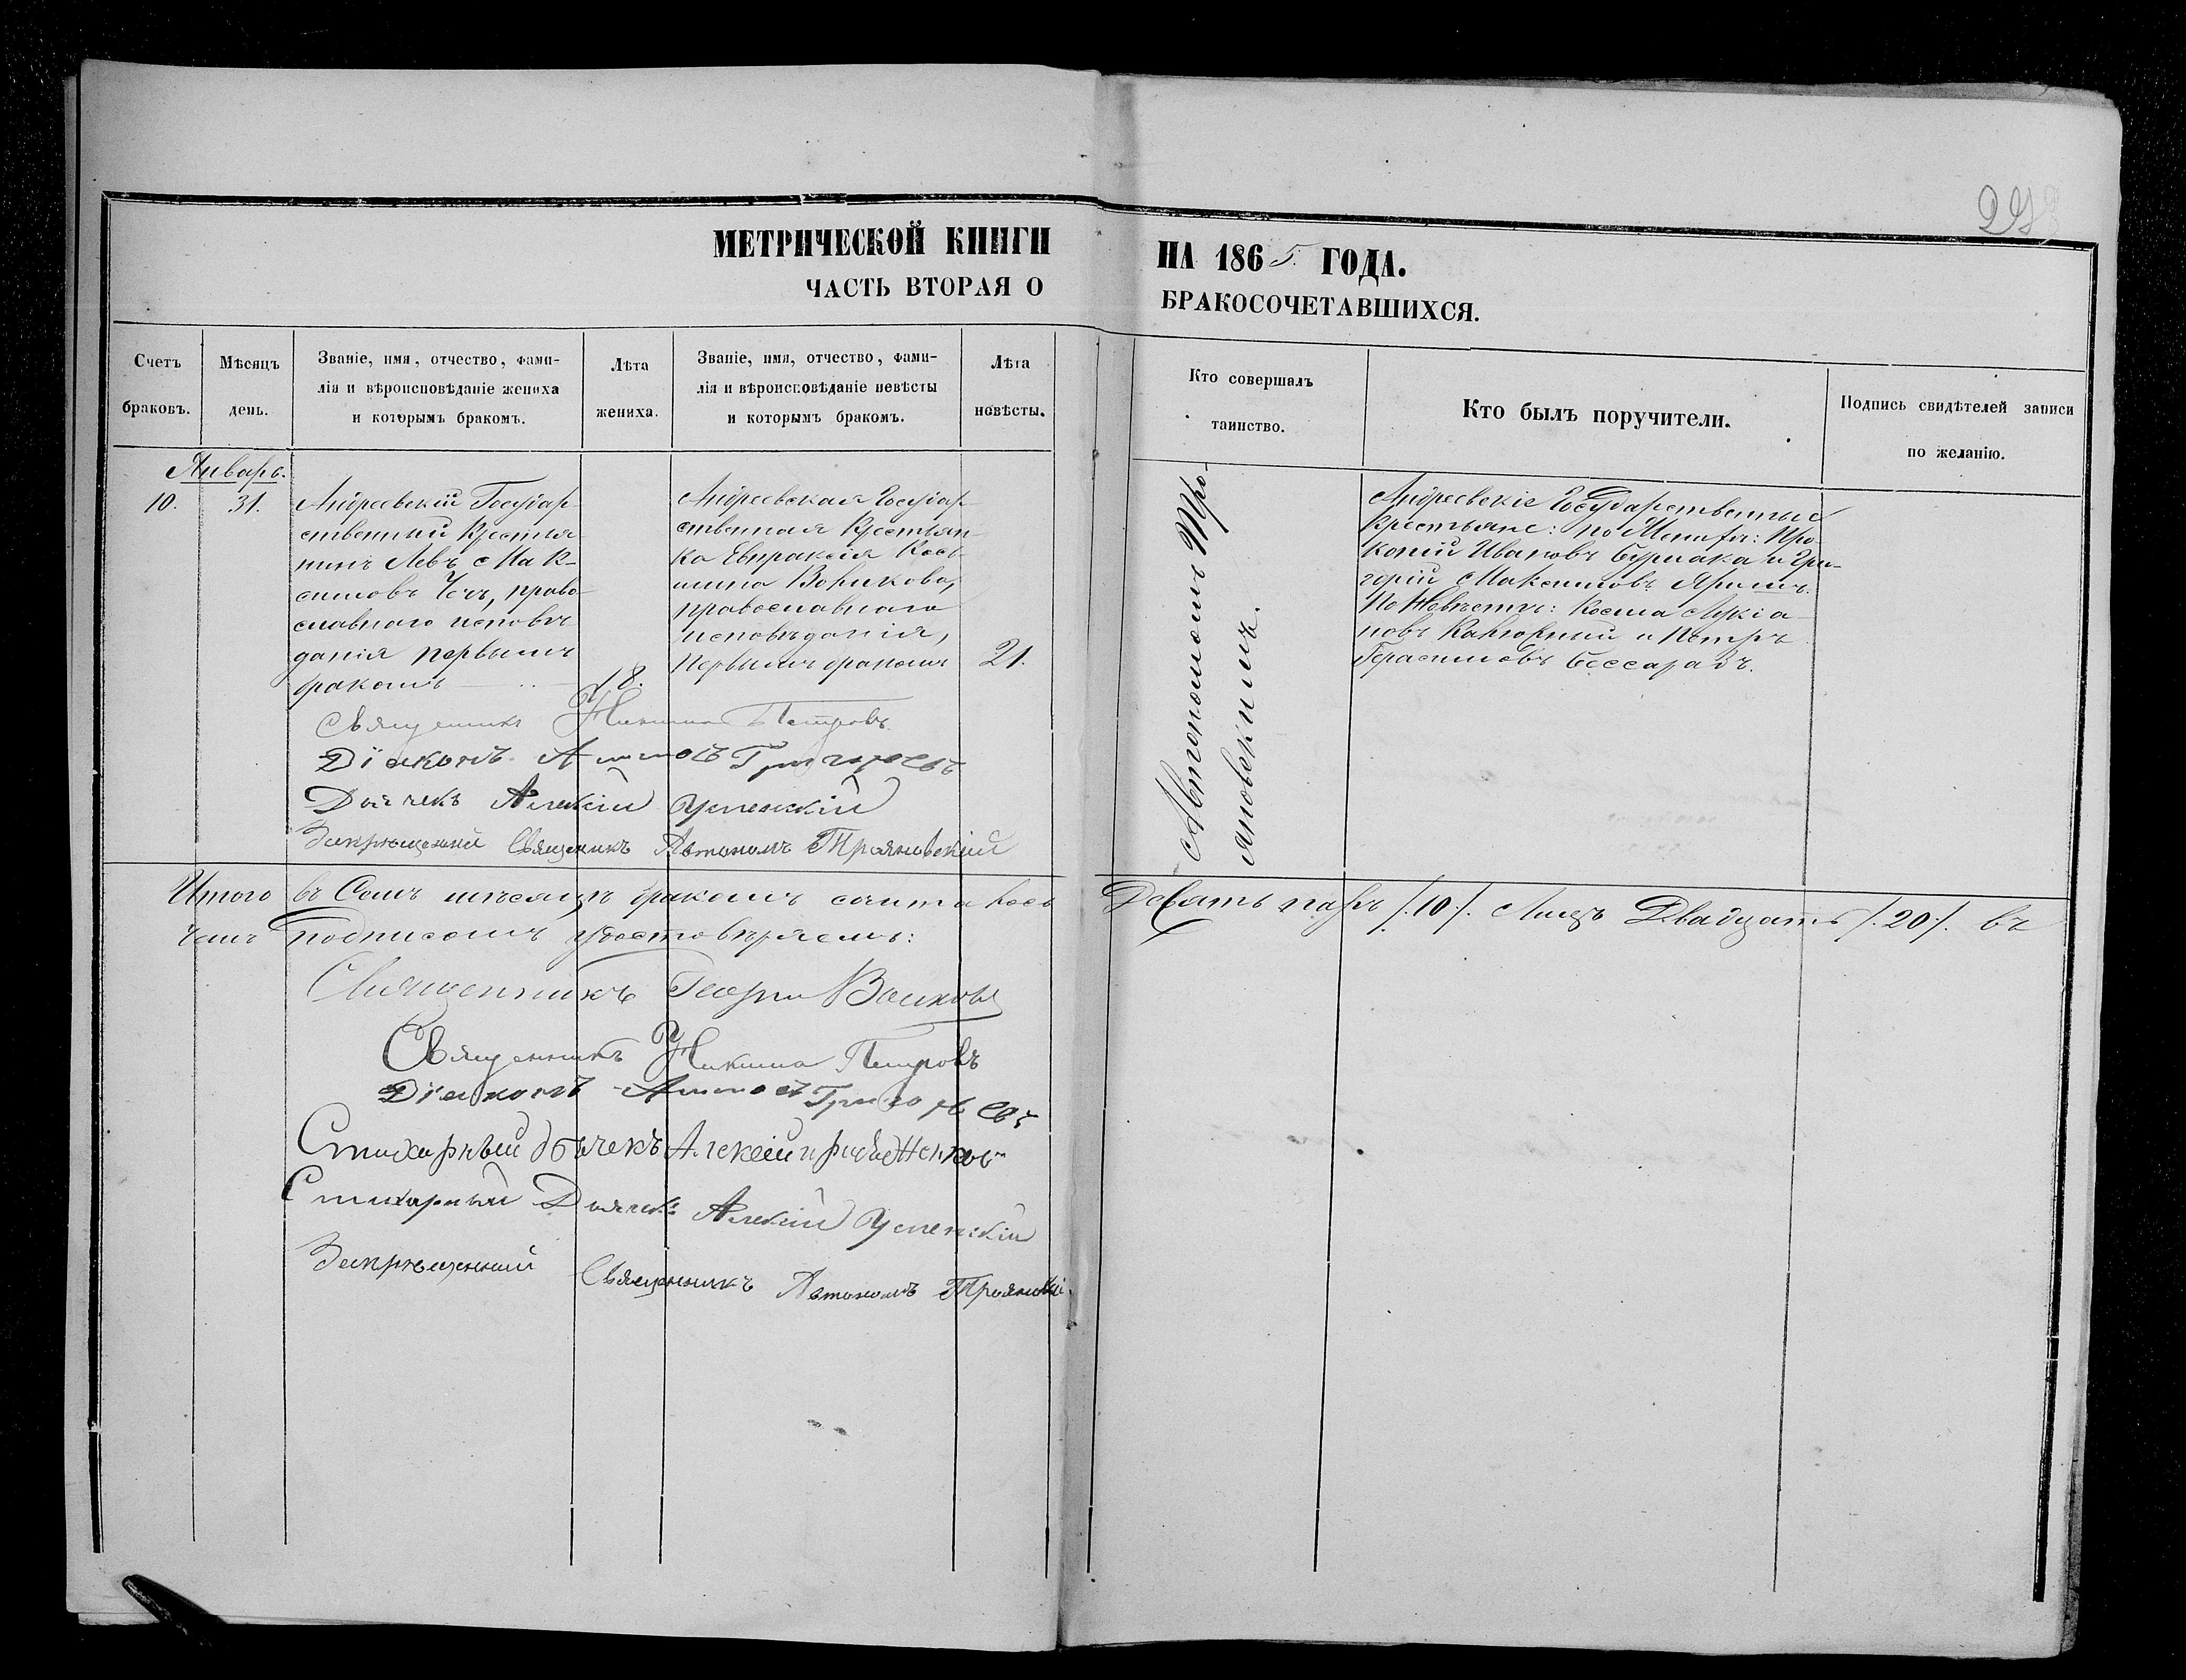 293
МЕТРИЧЕСКОЙ КНИГИ НА 1865. ГОДА.
ЧАСТЬ ВТОРАЯ О БРАКОСОЧЕТАВШИХСЯ.
Счетъ браковъ.
Мѣсяцъ день.
Званіе, имя, отчество, фами-
лія и вѣроисповѣданіе жениха
и которымъ бракомъ.
Лѣта жениха.
Званіе, имя, отчество, фами-
лія и вѣроисповѣданіе невѣсты
и которымъ бракомъ.
Лѣта невѣсты.
Кто совершалъ
таинство.
Кто былъ поручители.
Подпись свидѣтелей записи
по желанію.
Январь.
10.
31.
Андреевскій Государ-
ственный Крестья
нинъ Левъ Мак-
симовъ, право
славнаго исповѣ
данія первымъ
бракомъ
18.
Андреевская Государ-
ственная Крестьян-
ка Евпраксія Кось-
мина Воникова,
православнаго
исповѣданія,
первымъ бракомъ
21.
Автономомъ Тро-
яновскимъ.
Андреевскіе Государственные
Крестьяне: по Женихѣ: Про-
копій Ивановъ Бурлака и Гри-
горій Максимовъ
По Невѣстѣ: Косма Лукіа
новъ и Петръ
Герасимовъ Бессарабъ.
Священникъ Никита Петровъ
Діаконъ Аммосъ Григорьевъ
Дьячекъ Алексій Успенскій
Запрещенный Священикъ Автономъ Трояновскій
Итого въ Семъ мѣсяцѣ бракомъ сочиталось Десять паръ /.10./. Лицъ Двадцать /.20./. въ
чемъ подписомъ удостовѣряемъ:
Священникъ Георгій
Священникъ Никита Петровъ
Діаконъ Аммосъ Григорьевъ
Стихарный дьячекъ Алексій
Стихарный Дьячекъ Алексій Успенскій
Запрещенный Священникъ Автономъ Трояновскій